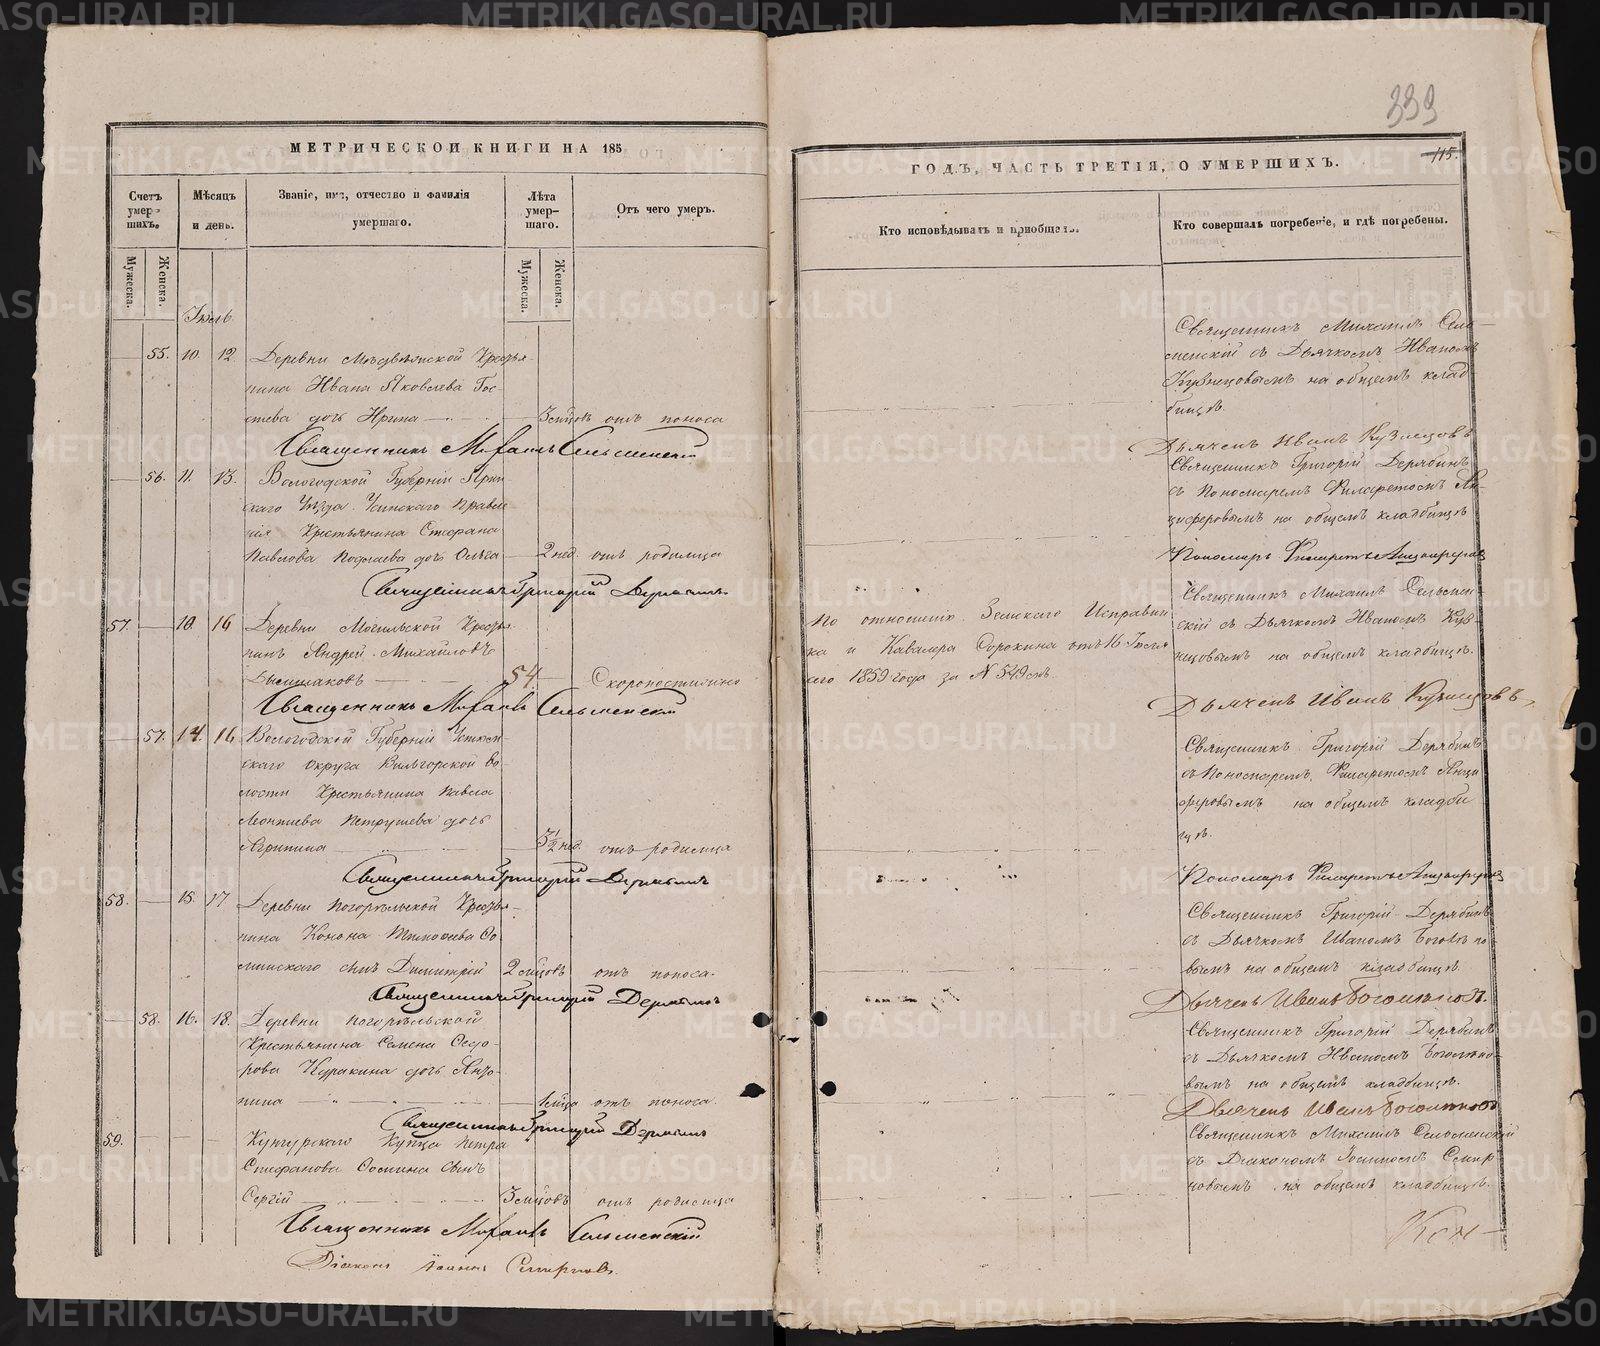 339
МЕТРИЧЕСКОЙ КНИГИ НА 185
Счетъ умер-шихъ.
Мѣсяцъ и день.
Званіе, имя, отчество и фамилія умершаго.
Лѣта умер-шаго.
Отъ чего умеръ.
Мужеска.
Женска.
Мужеска.
Женска.
Іюль.
55. 10. 12. Деревни Медвѣянской Крестья-
нина Ивана Яковлева Гос-
тева дочь Ирина 3 мцовъ отъ поноса
Священникъ Михаилъ Сельменскій
56. 11. 13. Вологодской Губерніи Ярин
скаго Уѣзда
Крестьянина Стефана
Павлова дочь Ольга 2 нед. отъ родимца
Священникъ Григорій Дерябинъ
57. 10. 16 Деревни Крестья
нинъ Андрей Михайловъ
54. Скоропостижно
Священникъ Михаилъ Сельменскій
57. 14. 16 Вологодской Губерніи
скаго округа Вильгорской во
лости Крестьянина Павла
Леонтиева Петрушева дочь
Агрипина 3 1/2 нед. отъ родимца
Священникъ Григорій Дерябинъ
58. 15. 17 Деревни Погорѣльской Крестья-
нина Конона Тимофеева Со-
сынъ Димитрій 2 мцовъ отъ поноса.
Священникъ Григорій Дерябинъ
58. 16. 18. Деревни Погорѣльской
Крестьянина Семена Федо-
рова Куракина дочь Анто-
нина 1 мца отъ поноса.
Священникъ Григорій Дерябинъ
59. Кунгурскаго Купца Петра
Стефанова сынъ
Сергій 3 мцовъ отъ родимца
Священникъ Михаилъ Сельменскій
Діаконъ Іоаннъ Смирновъ.
115.
ГОДЪ, ЧАСТЬ ТРЕТІЯ, О УМЕРШИХЪ.
Кто исповѣдывалъ и приобщалъ.
Кто совершалъ погребеніе, и гдѣ погребены.
Священникъ Михаилъ Сель-
менскій съ Дьячкомъ Иваномъ
Кузнецовымъ на общемъ клад
бищѣ.
Дьячекъ Иванъ Кузнецовъ
Священникъ Григорій Дерябинъ
съ Пономаремъ Филаретомъ Ан-
циферовымъ на общемъ кладбищѣ
Пономарь Филаретъ Анциферовъ
По отношенію Земскаго Исправни
ка и Кавалера Сорокина отъ 16 Іюля
сего 1859 года за № 549мъ.
Священникъ Михаилъ Сельмен-
скій съ Дьячкомъ Иваномъ Куз
нецовымъ на общемъ кладбищѣ.
Дьячекъ Иванъ Кузнецовъ,
Священникъ Григорій Дерябинъ
съ Пономаремъ Филаретомъ Анци
феровымъ на общемъ кладби
щѣ.
Пономарь Филаретъ Анциферовъ
Священникъ Григорій Дерябинъ
съ Дьячкомъ Иваномъ Боголѣпо
вымъ на общемъ кладбищѣ.
Дьячекъ Иванъ Боголѣповъ.
Священникъ Григорій Дерябинъ
съ Дьячкомъ Иваномъ Боголѣпо-
вымъ на общемъ кладбищѣ.
Дьячекъ Иванъ Боголѣповъ
Священникъ Михаилъ Сельменскій
съ Діакономъ Іоанномъ Смир
новымъ на общемъ кладбищѣ.
METRIKI.GASO-URAL.RU